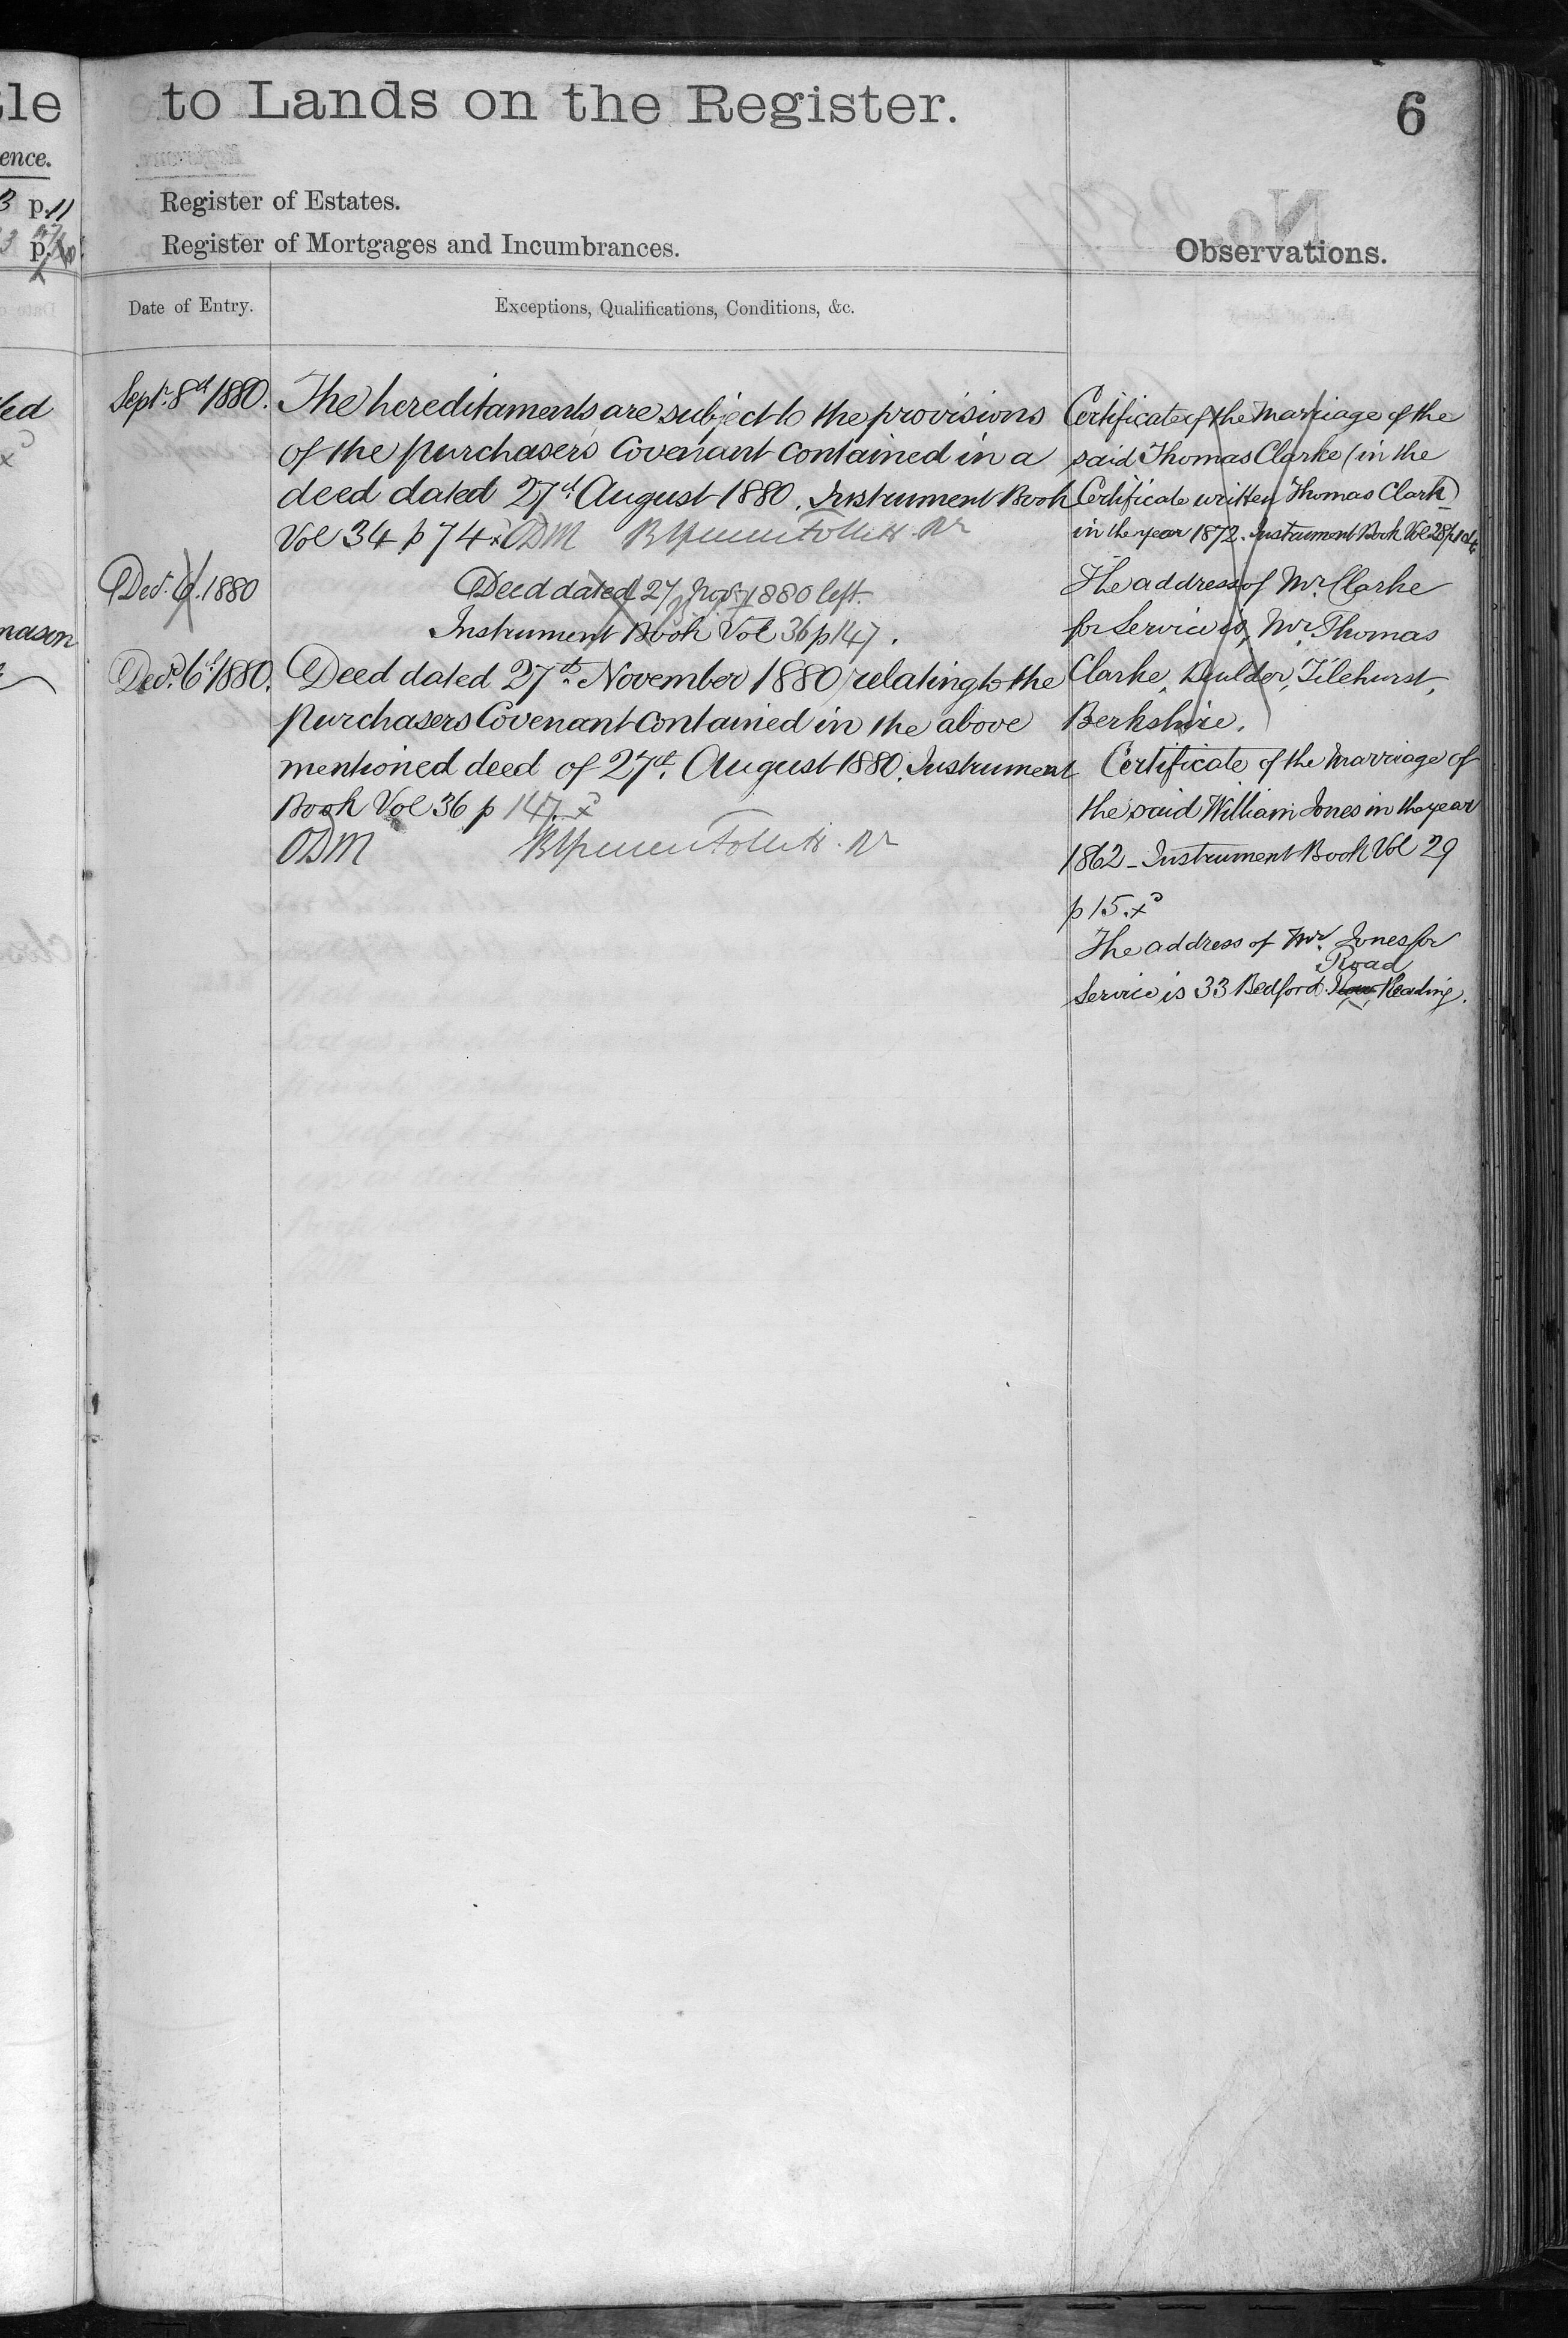 tle
ence.
p. 11
p.
ed
mason
to Lands on the Register.
6
Register of Estates.
Register of Mortgages and Incumbrances.
Observations.
Date of Entry.
Exceptions, Qualifications, Conditions, &c.
Sept. 8th 1880.
The hereditaments are subject to the provisions
of the purchasers Covenant contained in a
deed dated 27th August 1880. Instrument Book
Vol 34 p 74 ODM
Dec. 6. 1880
Deed dated 27 Nov. 1880 left.
Instrument Book Vol 36 p 147.
Decr. 6th 1880.
Deed dated 27th November 1880 relating to the
purchasers Covenant contained in the above
mentioned deed of 27th August 1880. Instrument
Book Vol 36 p 147.
ODM
Certificate of the Marriage of the
said Thomas Clarke (in the
Certificate written Thomas Clark)
in the year 1872. Instrument Book Vol 28 p
The address of Mr. Clarke
for Service is, Mr. Thomas
Clarke, Builder, Tilehurst,
Berkshire.
Certificate of the Marriage of
the said William Jones in the year
1862 - Instrument Book Vol 29
p 15.
The address of Mr. Jones for
Road
Service is 33 Bedford Row Reading.